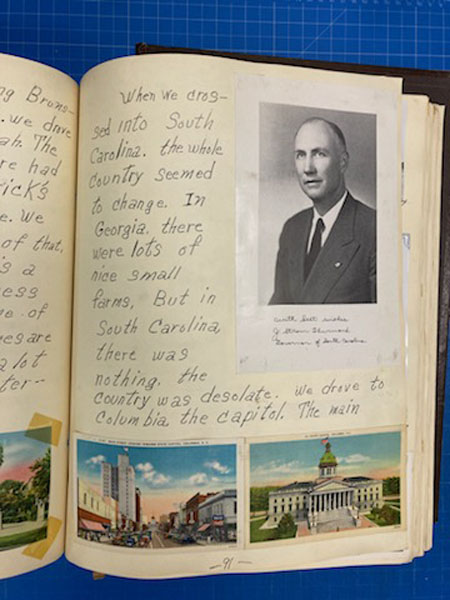 ng Bruns-
we drove
ah. The
re had
rick's
e. We
of that,
s a
ess
e of
nes are
a lot
ter-
When we cros-
sed into South
Carolina. the whole
Country seemed
to change. In
Georgia. there
were lots of
nice small
farms, But in
South Carolina,
there was
nothing. the
Country was desolate. We drove to
Columbia. the capitol. The main
With best wishes
J Strom Thurmond
Governor of South Carolina
MAIN STREET LOOKING TOWARD STATE CAPITOL, COLUMBIA, S. C.
—91—